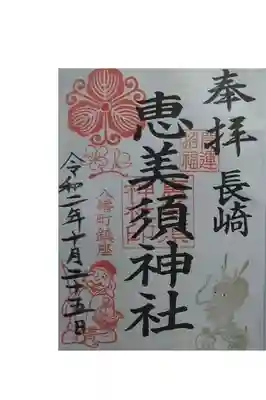 奉拝 長崎
開運
招福
恵美須神社
八幡町鎮座
令和二年十月二十五日